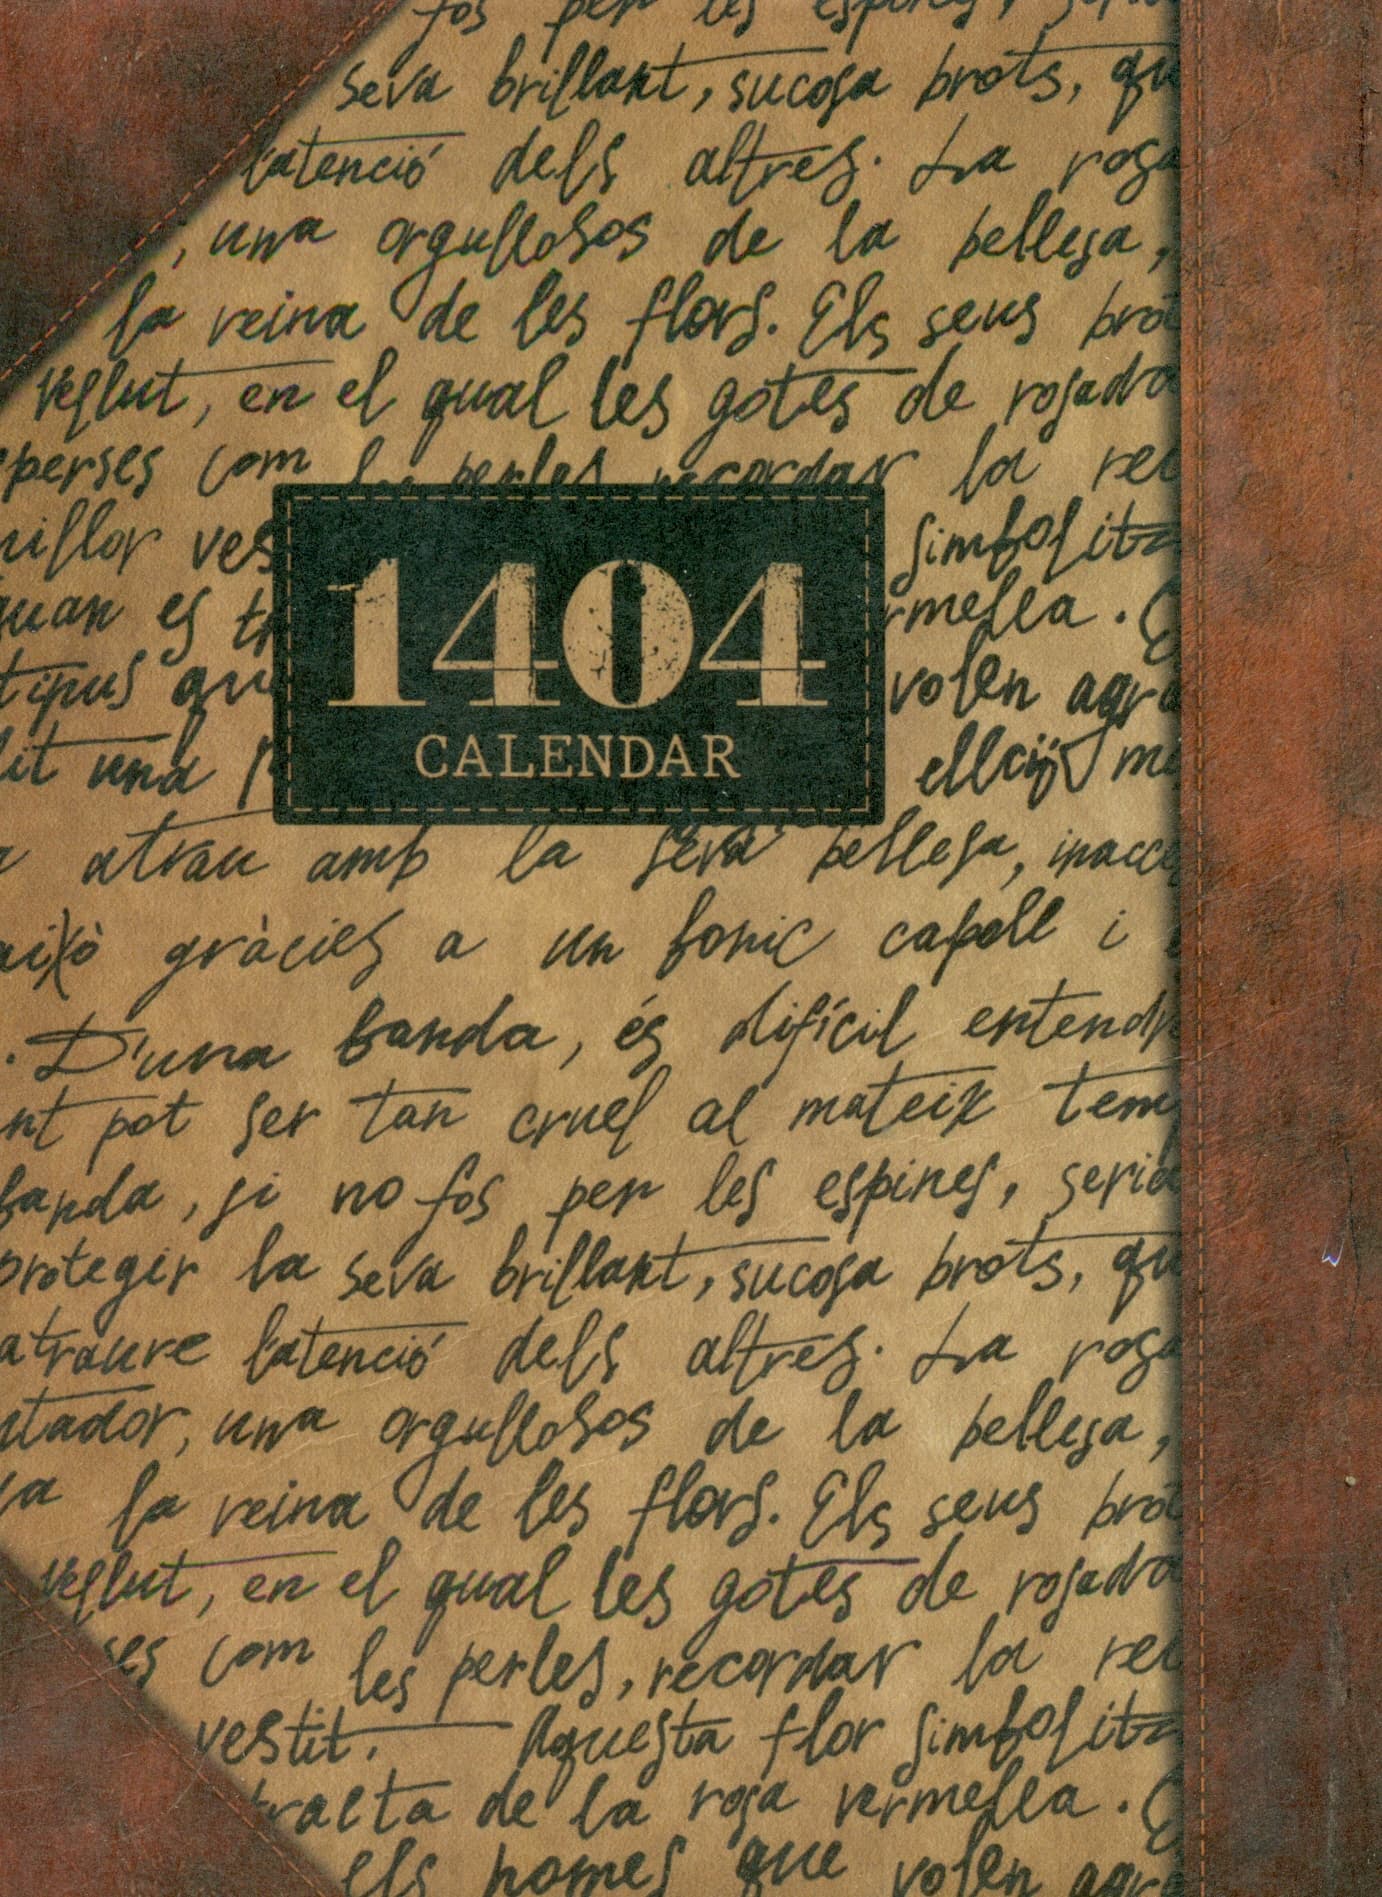 fos per les espines, seria
seva brillant, sucosa brots, qu
l'atenció dels altres. La rosa
, una orgullosos de la bellesa,
la reina de les flors. Els seus brot
vellut, en el qual les gotes de rosada
sperses com les perles, recordar la rei
millor ves simbolitz
quan es tr rmella.
tipus que volen agra
lit una
1404
CALENDAR
atrau amb la seva bellesa, inacce
això gràcies a un bonic capoll i
. D'una banda, és difícil entendr
nt pot ser tan cruel al mateix temp
banda, si no fos per les espines, seria
protegir la seva brillant, sucosa brots, qu
atraure l'atenció dels altres. La rosa
ntador, una orgullosos de la bellesa,
la reina de les flors. Els seus brot
vellut, en el qual les gotes de rosada
ses com les perles, recordar la rei
vestit. Aquesta flor simbolitz
tracta de la rosa vermella.
els homes que volen agra